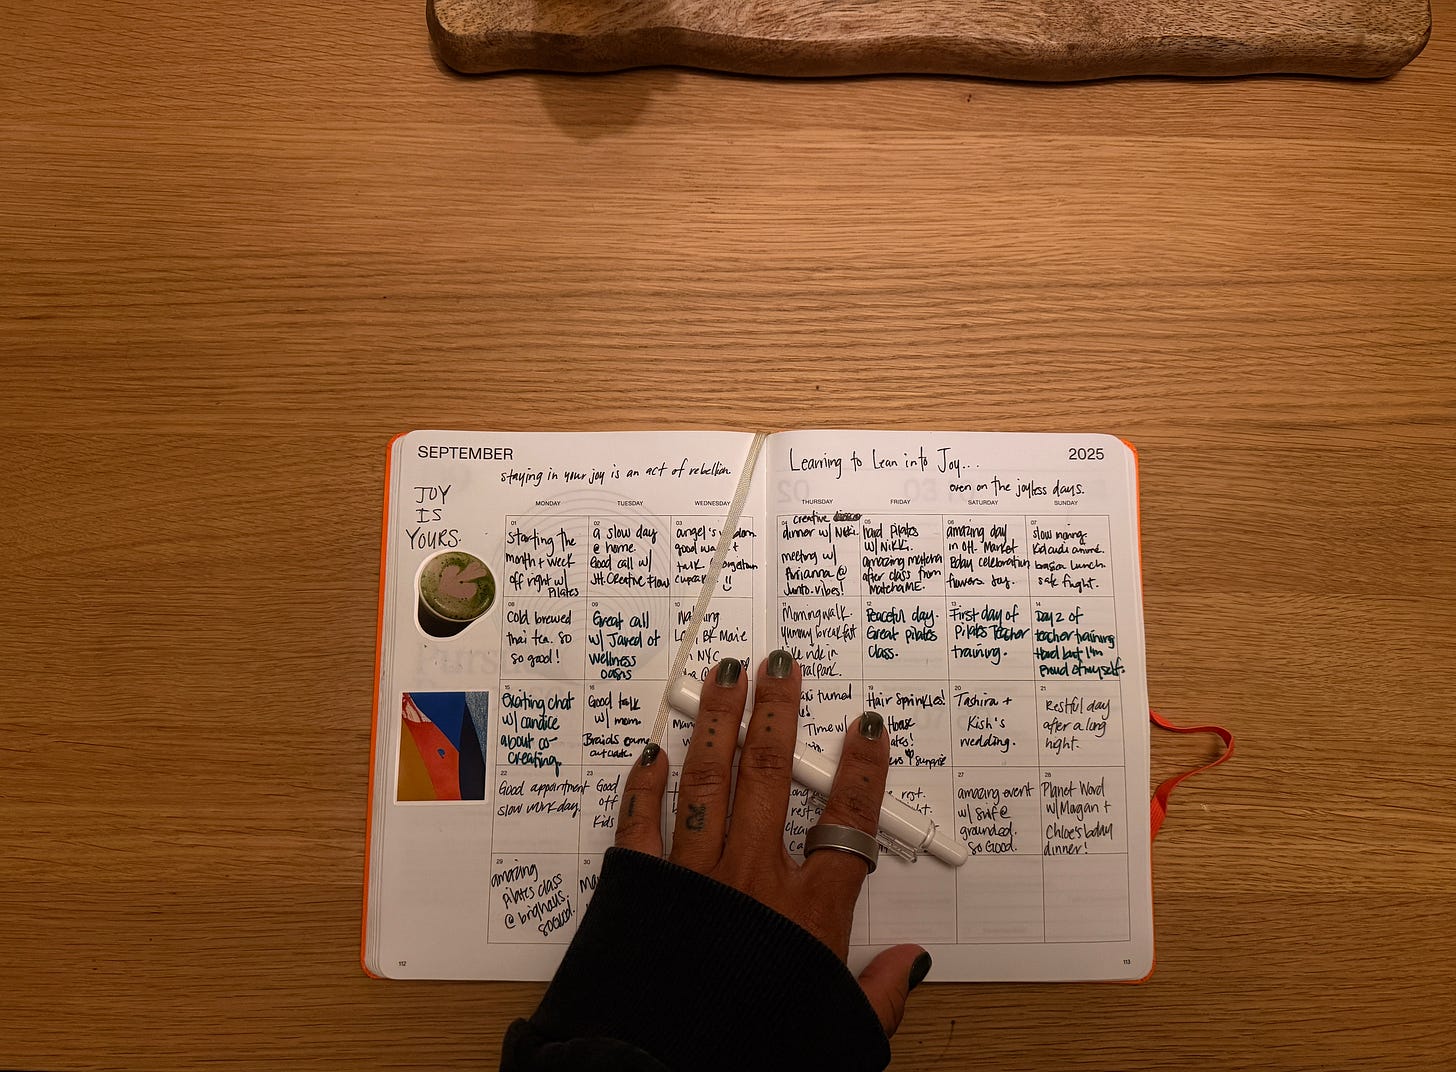 SEPTEMBER
staying in your joy is an act of rebellion.
JOY
IS
YOURS.
MONDAY
TUESDAY
WEDNESDAY
01
starting the
month + week
off right w/
Pilates
02
a slow day
@ home.
Good call w/
JH. Creative Flow
03
angel's
good
talk.
cupcake
!!
08
Cold brewed
thai tea. so
so good!
09
Great call
w/ Jared at
wellness
oasis
10
BK
NYC
15
Exciting chat
w/ candice
about co-
creating.
16
Good talk
w/ mom.
Braids came
out cute.
22
Good appointment
slow work day.
23
Good
off
Kids
24
29
amazing
pilates class
@
so Good.
30
112
Learning to lean into Joy...
even on the joyless days.
2025
THURSDAY
FRIDAY
SATURDAY
SUNDAY
04
creative
dinner w/ Nikki.
meeting w/
Arianna @
Junto. vibes!
05
hard Pilates
w/ Nikki.
amazing matcha
after class from
matchaME.
06
amazing day
in Market
Bday celebration
flowers
07
slow
lunch
11
Morning walk.
yummy breakfast
ride in
12
Peaceful day.
Great pilates
class.
13
First day of
Pilates Teacher
training.
14
Day 2 of
teacher training
Hard but I'm
Proud of myself.
turned
Time w/
19
Hair Sprinkles!
House
surprise
20
Tashira +
Kish's
wedding.
21
Restful day
after a long
night.
rest.
27
amazing event
w/ @
grounded.
so Good.
28
Planet Word
w/ Morgan +
Chloe's bday
dinner!
113